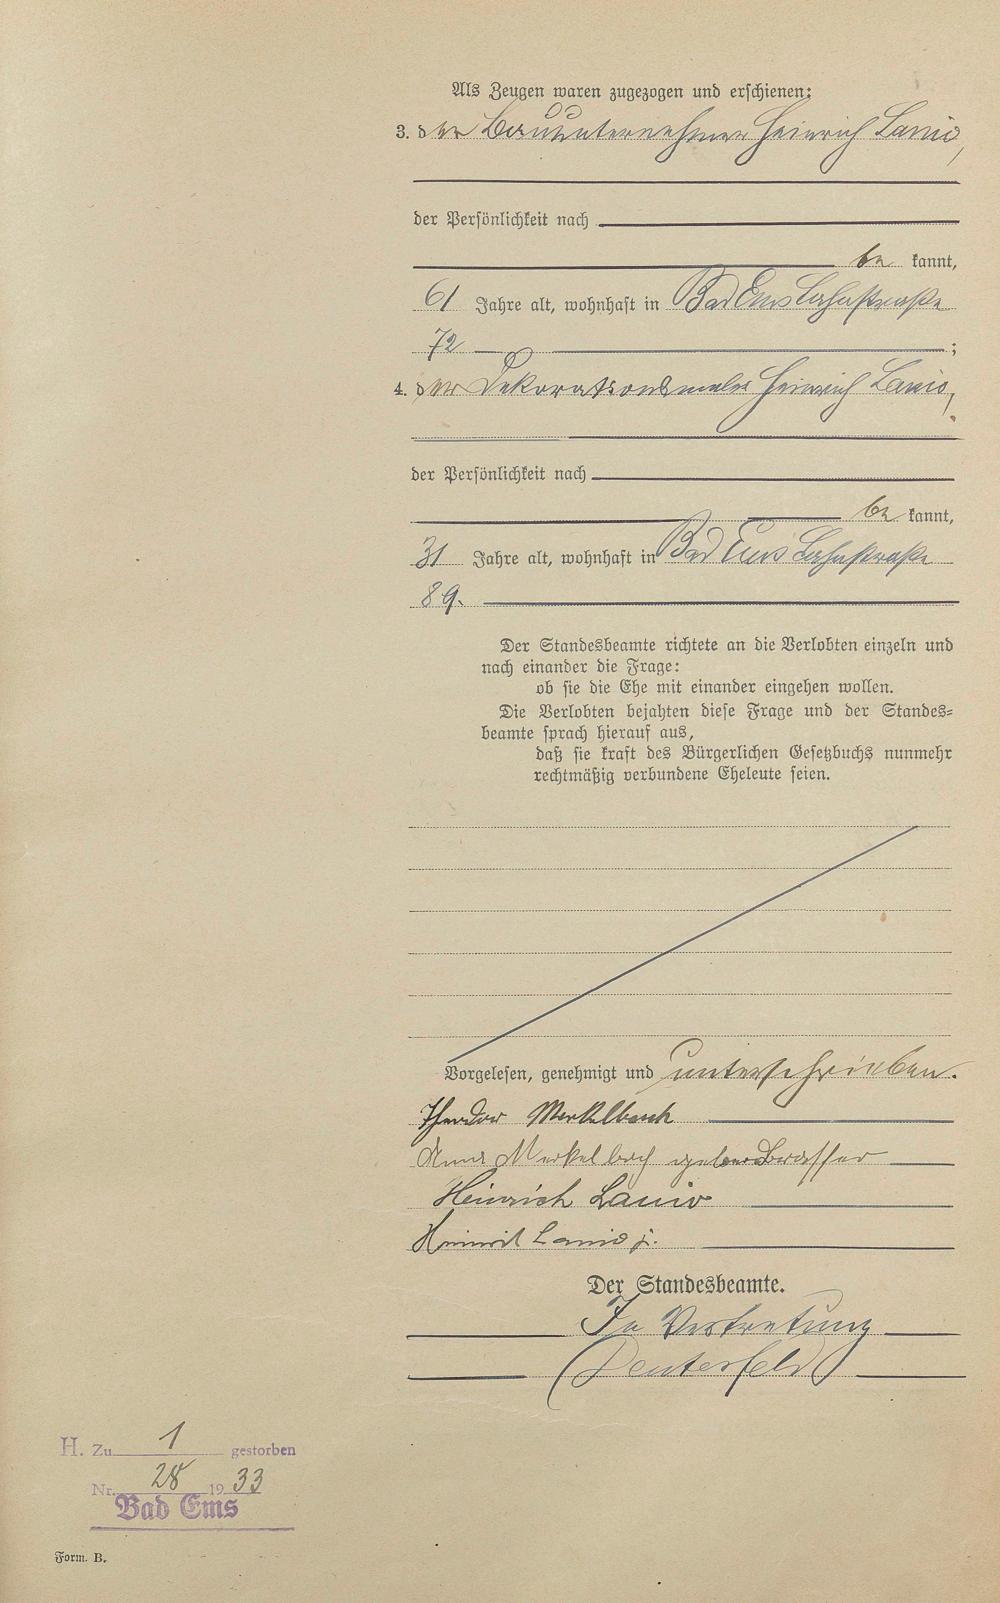 Als Zeugen waren zugezogen und erschienen:
3. der Bauunternehmer Heinrich Lanio,
der Persönlichkeit nach
be kannt,
61 Jahre alt, wohnhaft in Bad Ems Lahnstraße
72 ;
4. der Dekorationsmaler Heinrich Lanio,
der Persönlichkeit nach
be kannt,
31 Jahre alt, wohnhaft in Bad Ems Lahnstraße
89.
Der Standesbeamte richtete an die Verlobten einzeln und
nach einander die Frage:
ob sie die Ehe mit einander eingehen wollen.
Die Verlobten bejahten diese Frage und der Standes-
beamte sprach hierauf aus,
daß sie kraft des Bürgerlichen Gesetzbuchs nunmehr
rechtmäßig verbundene Eheleute seien.
Vorgelesen, genehmigt und unterschrieben.
Theodor Merkelbach
Anna Merkelbach geborene
Heinrich Lanio
Heinrich Lanio jr.
Der Standesbeamte.
In Vertretung
H. Zu 1 gestorben
Nr. 28 1933
Bad Ems
Form. B.